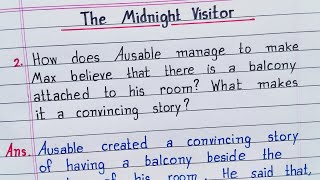 The Midnight Visitor
2. How does Ausable manage to make
Max believe that there is a balcony
attached to his room? What makes
it a convincing story?
Ans. Ausable created a convincing story
of having a balcony beside the
of his room. He said that,